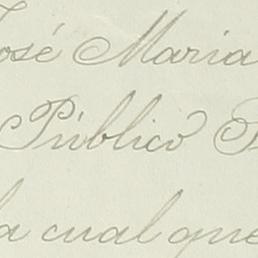 José Maria
Público
la cual que